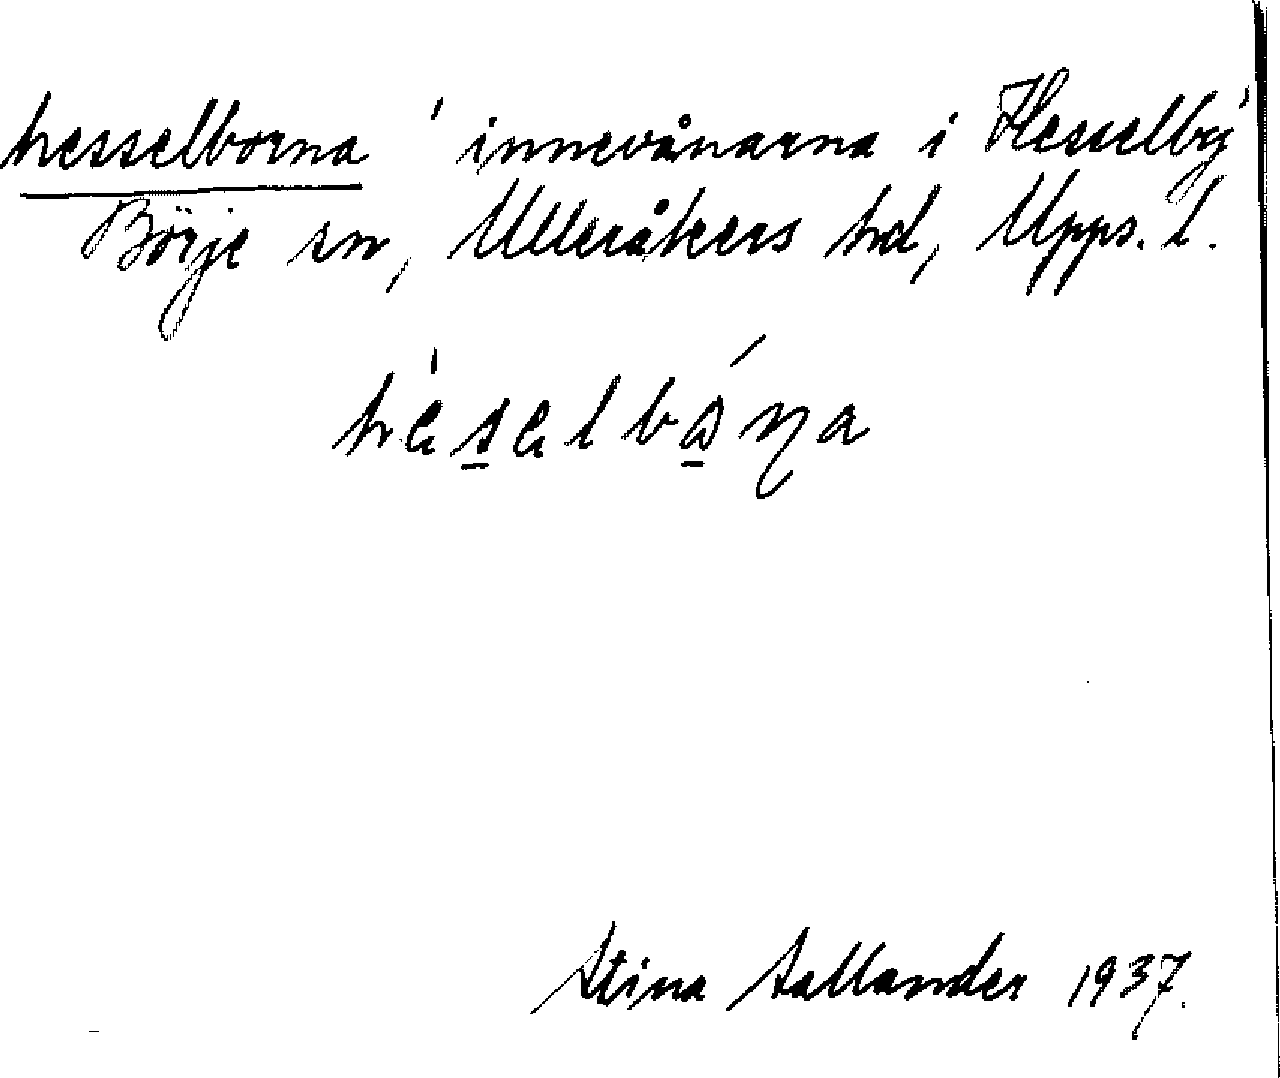 hesselborna 'innevånarna i Hesselby'
Börje sn, Ulleråkers hd, Upps. l.
Stina Sallander 1937.